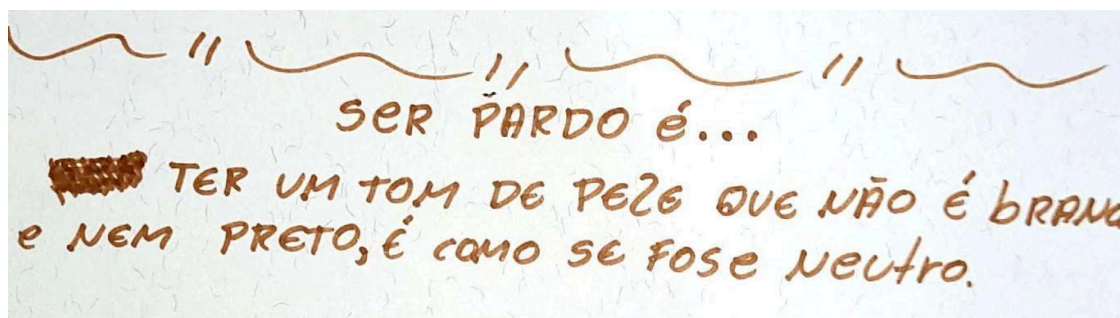 SER PARDO É...
TER UM TOM DE PELE QUE NÃO É BRANC
E NEM PRETO, É COMO SE FOSE NEUTRO.